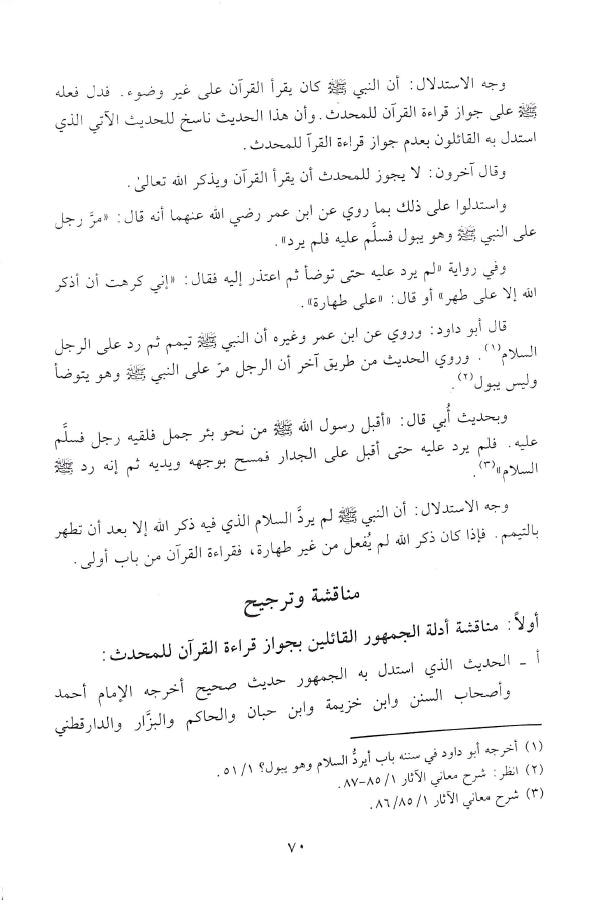 وجه الاستدلال: أن النبي ﷺ كان يقرأ القرآن على غير وضوء. فدل فعله
ﷺ على جواز قراءة القرآن للمحدث. وأن هذا الحديث ناسخ للحديث الآتي الذي
استدل به القائلون بعدم جواز قراءة القرآ للمحدث.
وقال آخرون: لا يجوز للمحدث أن يقرأ القرآن ويذكر الله تعالىٰ.
واستدلوا على ذلك بما روي عن ابن عمر رضي الله عنهما أنه قال: «مرَّ رجل
على النبي ﷺ وهو يبول فسلَّم عليه فلم يرد».
وفي رواية «لم يرد عليه حتى توضأ ثم اعتذر إليه فقال: «إني كرهت أن أذكر
الله إلا على طهر» أو قال: «على طهارة».
قال أبو داود: وروي عن ابن عمر وغيره أن النبي ﷺ تيمم ثم رد على الرجل
السلام(١). وروي الحديث من طريق آخر أن الرجل مرّ على النبي ﷺ وهو يتوضأ
وليس يبول(٢).
وبحديث أُبي قال: «أقبل رسول الله ﷺ من نحو بئر جمل فلقيه رجل فسلَّم
عليه. فلم يرد عليه حتى أقبل على الجدار فمسح بوجهه ويديه ثم إنه رد ﷺ
السلام»(٣).
وجه الاستدلال: أن النبي ﷺ لم يردَّ السلام الذي فيه ذكر الله إلا بعد أن تطهر
بالتيمم. فإذا كان ذكر الله لم يُفعل من غير طهارة، فقراءة القرآن من باب أولى.
مناقشة وترجيح
أولاً: مناقشة أدلة الجمهور القائلين بجواز قراءة القرآن للمحدث:
أ ـ الحديث الذي استدل به الجمهور حديث صحيح أخرجه الإمام أحمد
وأصحاب السنن وابن خزيمة وابن حبان والحاكم والبزَّار والدارقطني
(١) أخرجه أبو داود في سننه باب أيردُّ السلام وهو يبول؟ ٥١/١.
(٢) انظر: شرح معاني الآثار ٨٥/١-٨٧.
(٣) شرح معاني الآثار ٨٦/٨٥/١.
٧٠